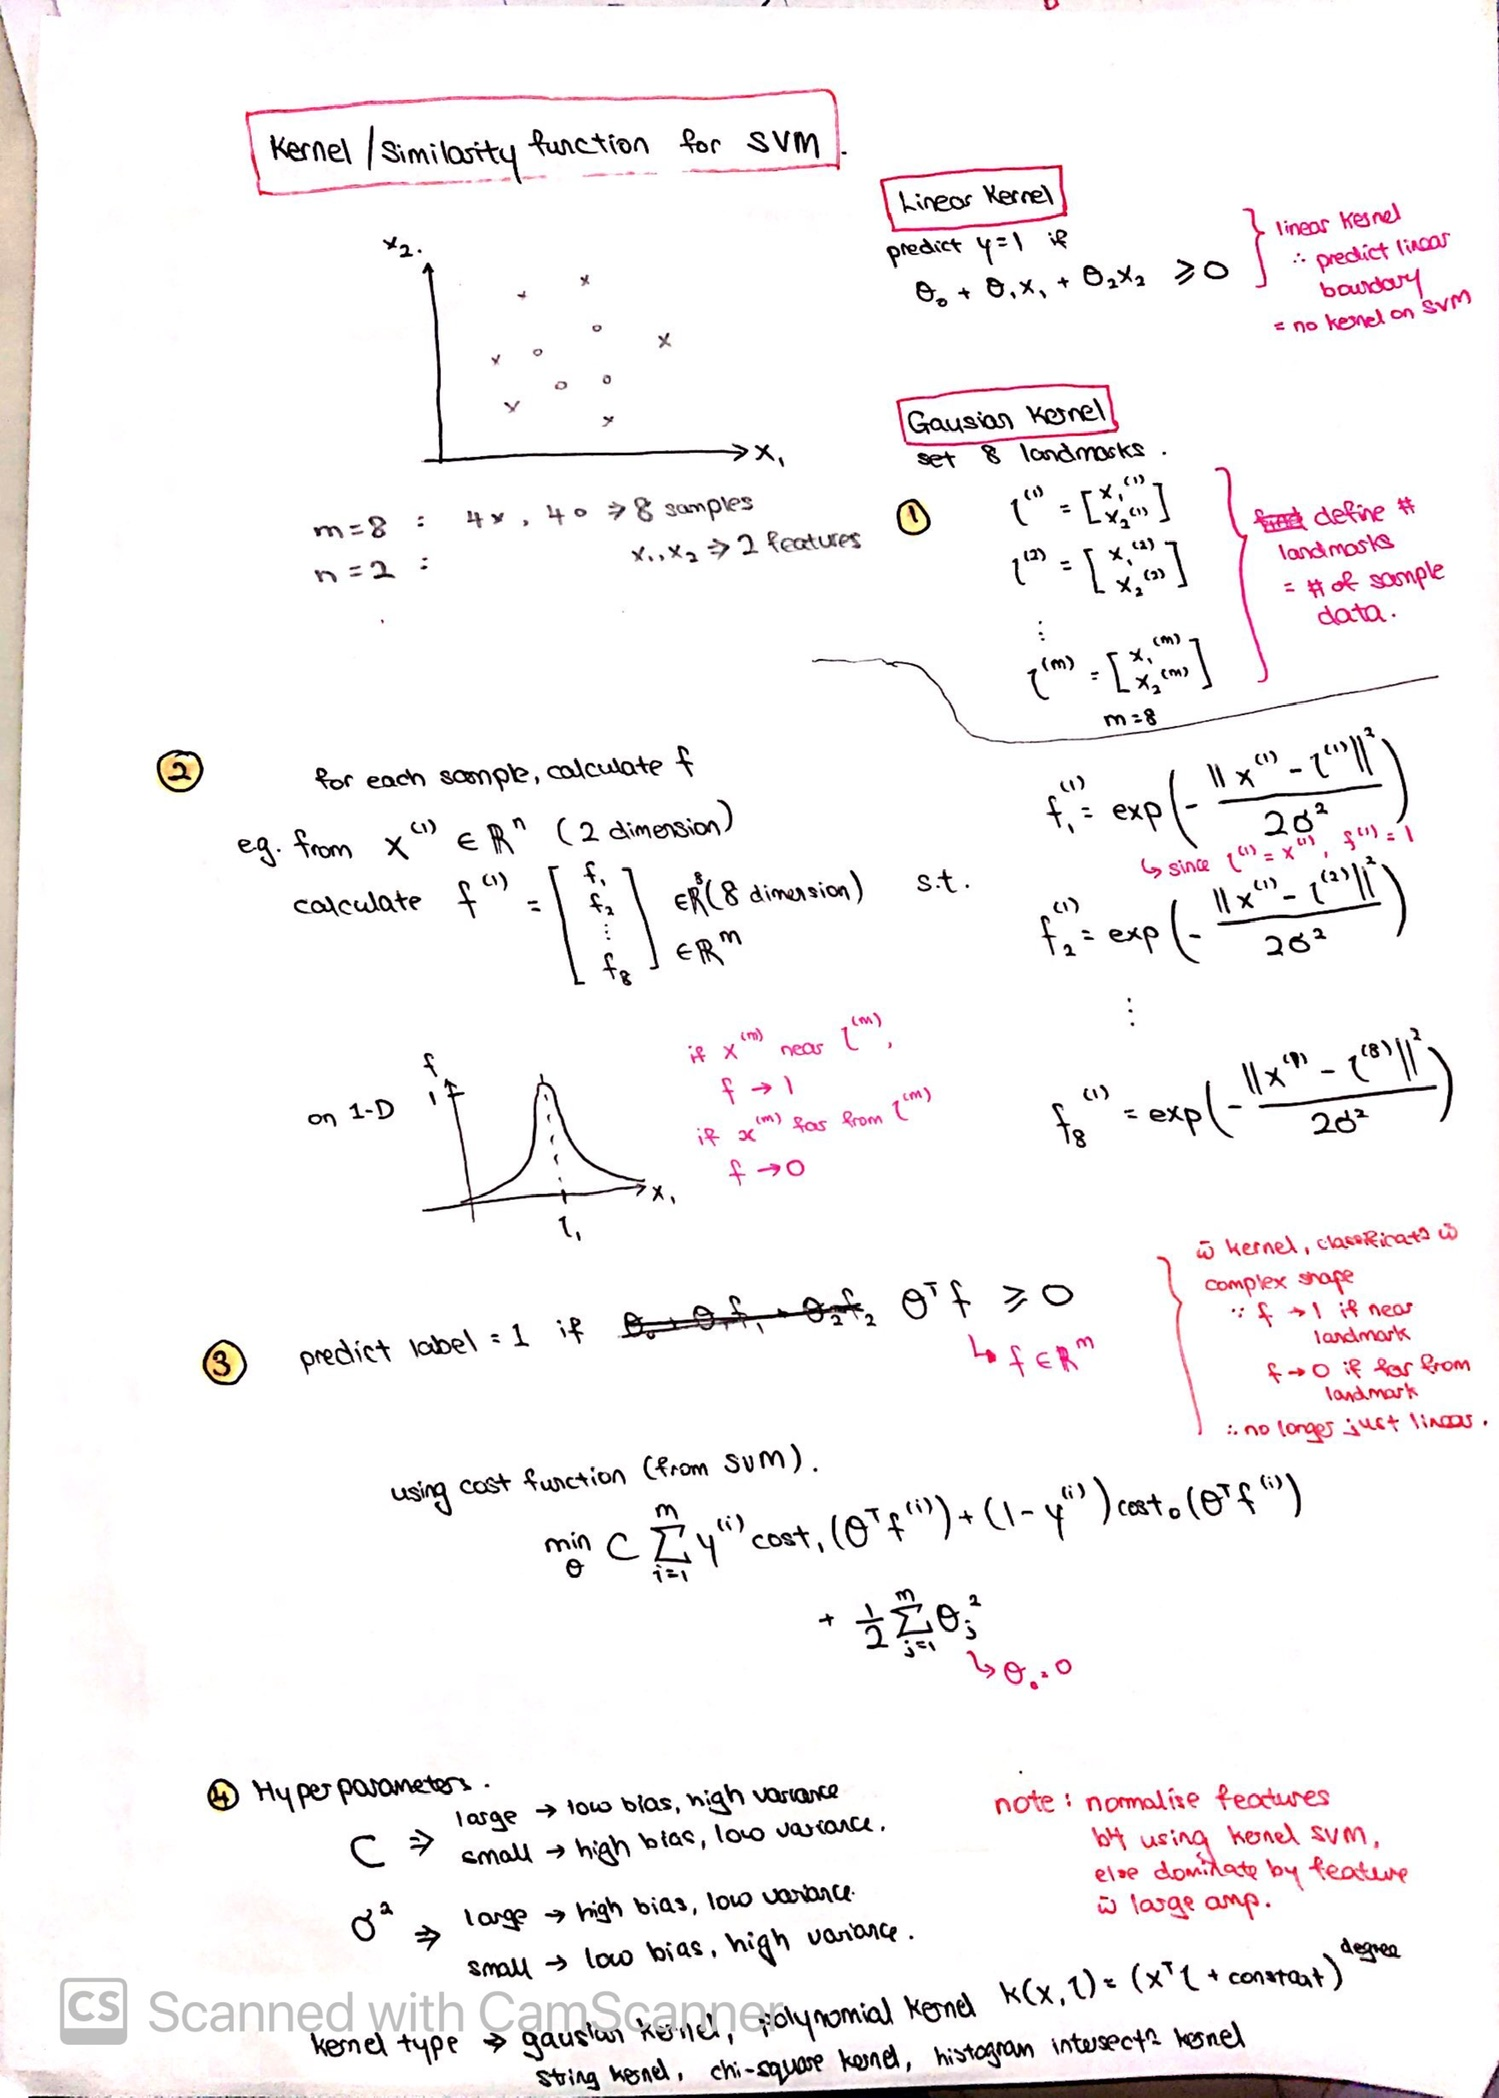 Kernel / Similarity function for SVM.
Linear Kernel
predict y=1 if
θ₀ + θ₁x₁ + θ₂x₂ ⩾ 0
linear kernel
∴ predict linear
boundary
= no kernel on SVM
x₂.
x₁
m=8 : 4x, 4o ⇒ 8 samples
n=2 : x₁,x₂ ⇒ 2 features
Gausian Kernel
set 8 landmarks.
① l⁽¹⁾ = [x₁⁽¹⁾ x₂⁽¹⁾]
l⁽²⁾ = [x₁⁽²⁾ x₂⁽²⁾]
⋮
l⁽ᵐ⁾ = [x₁⁽ᵐ⁾ x₂⁽ᵐ⁾]
m=8
define #
landmarks
= # of sample
data.
② for each sample, calculate f
eg. from x⁽¹⁾ ∈ ℝⁿ (2 dimension)
calculate f⁽¹⁾ = [f₁ f₂ ⋮ f₈] ∈ℝ⁸(8 dimension) s.t.
∈ℝᵐ
f₁⁽¹⁾ = exp(- ||x⁽¹⁾ - l⁽¹⁾||² / 2σ²)
↳ since l⁽¹⁾ = x⁽¹⁾, f⁽¹⁾ = 1
f₂⁽¹⁾ = exp(- ||x⁽¹⁾ - l⁽²⁾||² / 2σ²)
⋮
f₈⁽¹⁾ = exp(- ||x⁽¹⁾ - l⁽⁸⁾||² / 2σ²)
on 1-D
f
1
x₁
l₁
if x⁽ᵐ⁾ near l⁽ᵐ⁾,
f → 1
if x⁽ᵐ⁾ far from l⁽ᵐ⁾
f → 0
③ predict label = 1 if θ₀ + θ₁f₁ + θ₂f₂ θᵀf ⩾ 0
↳ f ∈ ℝᵐ
w̄ kernel, classificatⁿ w̄
complex shape
∵ f → 1 if near
landmark
f → 0 if far from
landmark
∴ no longer just linear.
using cost function (from SVM).
min θ C Σᵢ₌₁ᵐ y⁽ⁱ⁾ cost₁(θᵀf⁽ⁱ⁾) + (1 - y⁽ⁱ⁾) cost₀(θᵀf⁽ⁱ⁾)
+ ½ Σⱼ₌₁ᵐ θⱼ²
↳ θ₀ = 0
④ Hyperparameters.
C ⇒ large → low bias, high variance
small → high bias, low variance.
σ² ⇒ large → high bias, low variance.
small → low bias, high variance.
note : normalise features
b4 using kernel SVM,
else dominate by feature
w̄ large amp.
kernel type ⇒ gausian kernel, polynomial kernel k(x, l) = (xᵀl + constant)^degree
string kernel, chi-square kernel, histogram intersectⁿ kernel
CS Scanned with CamScanner